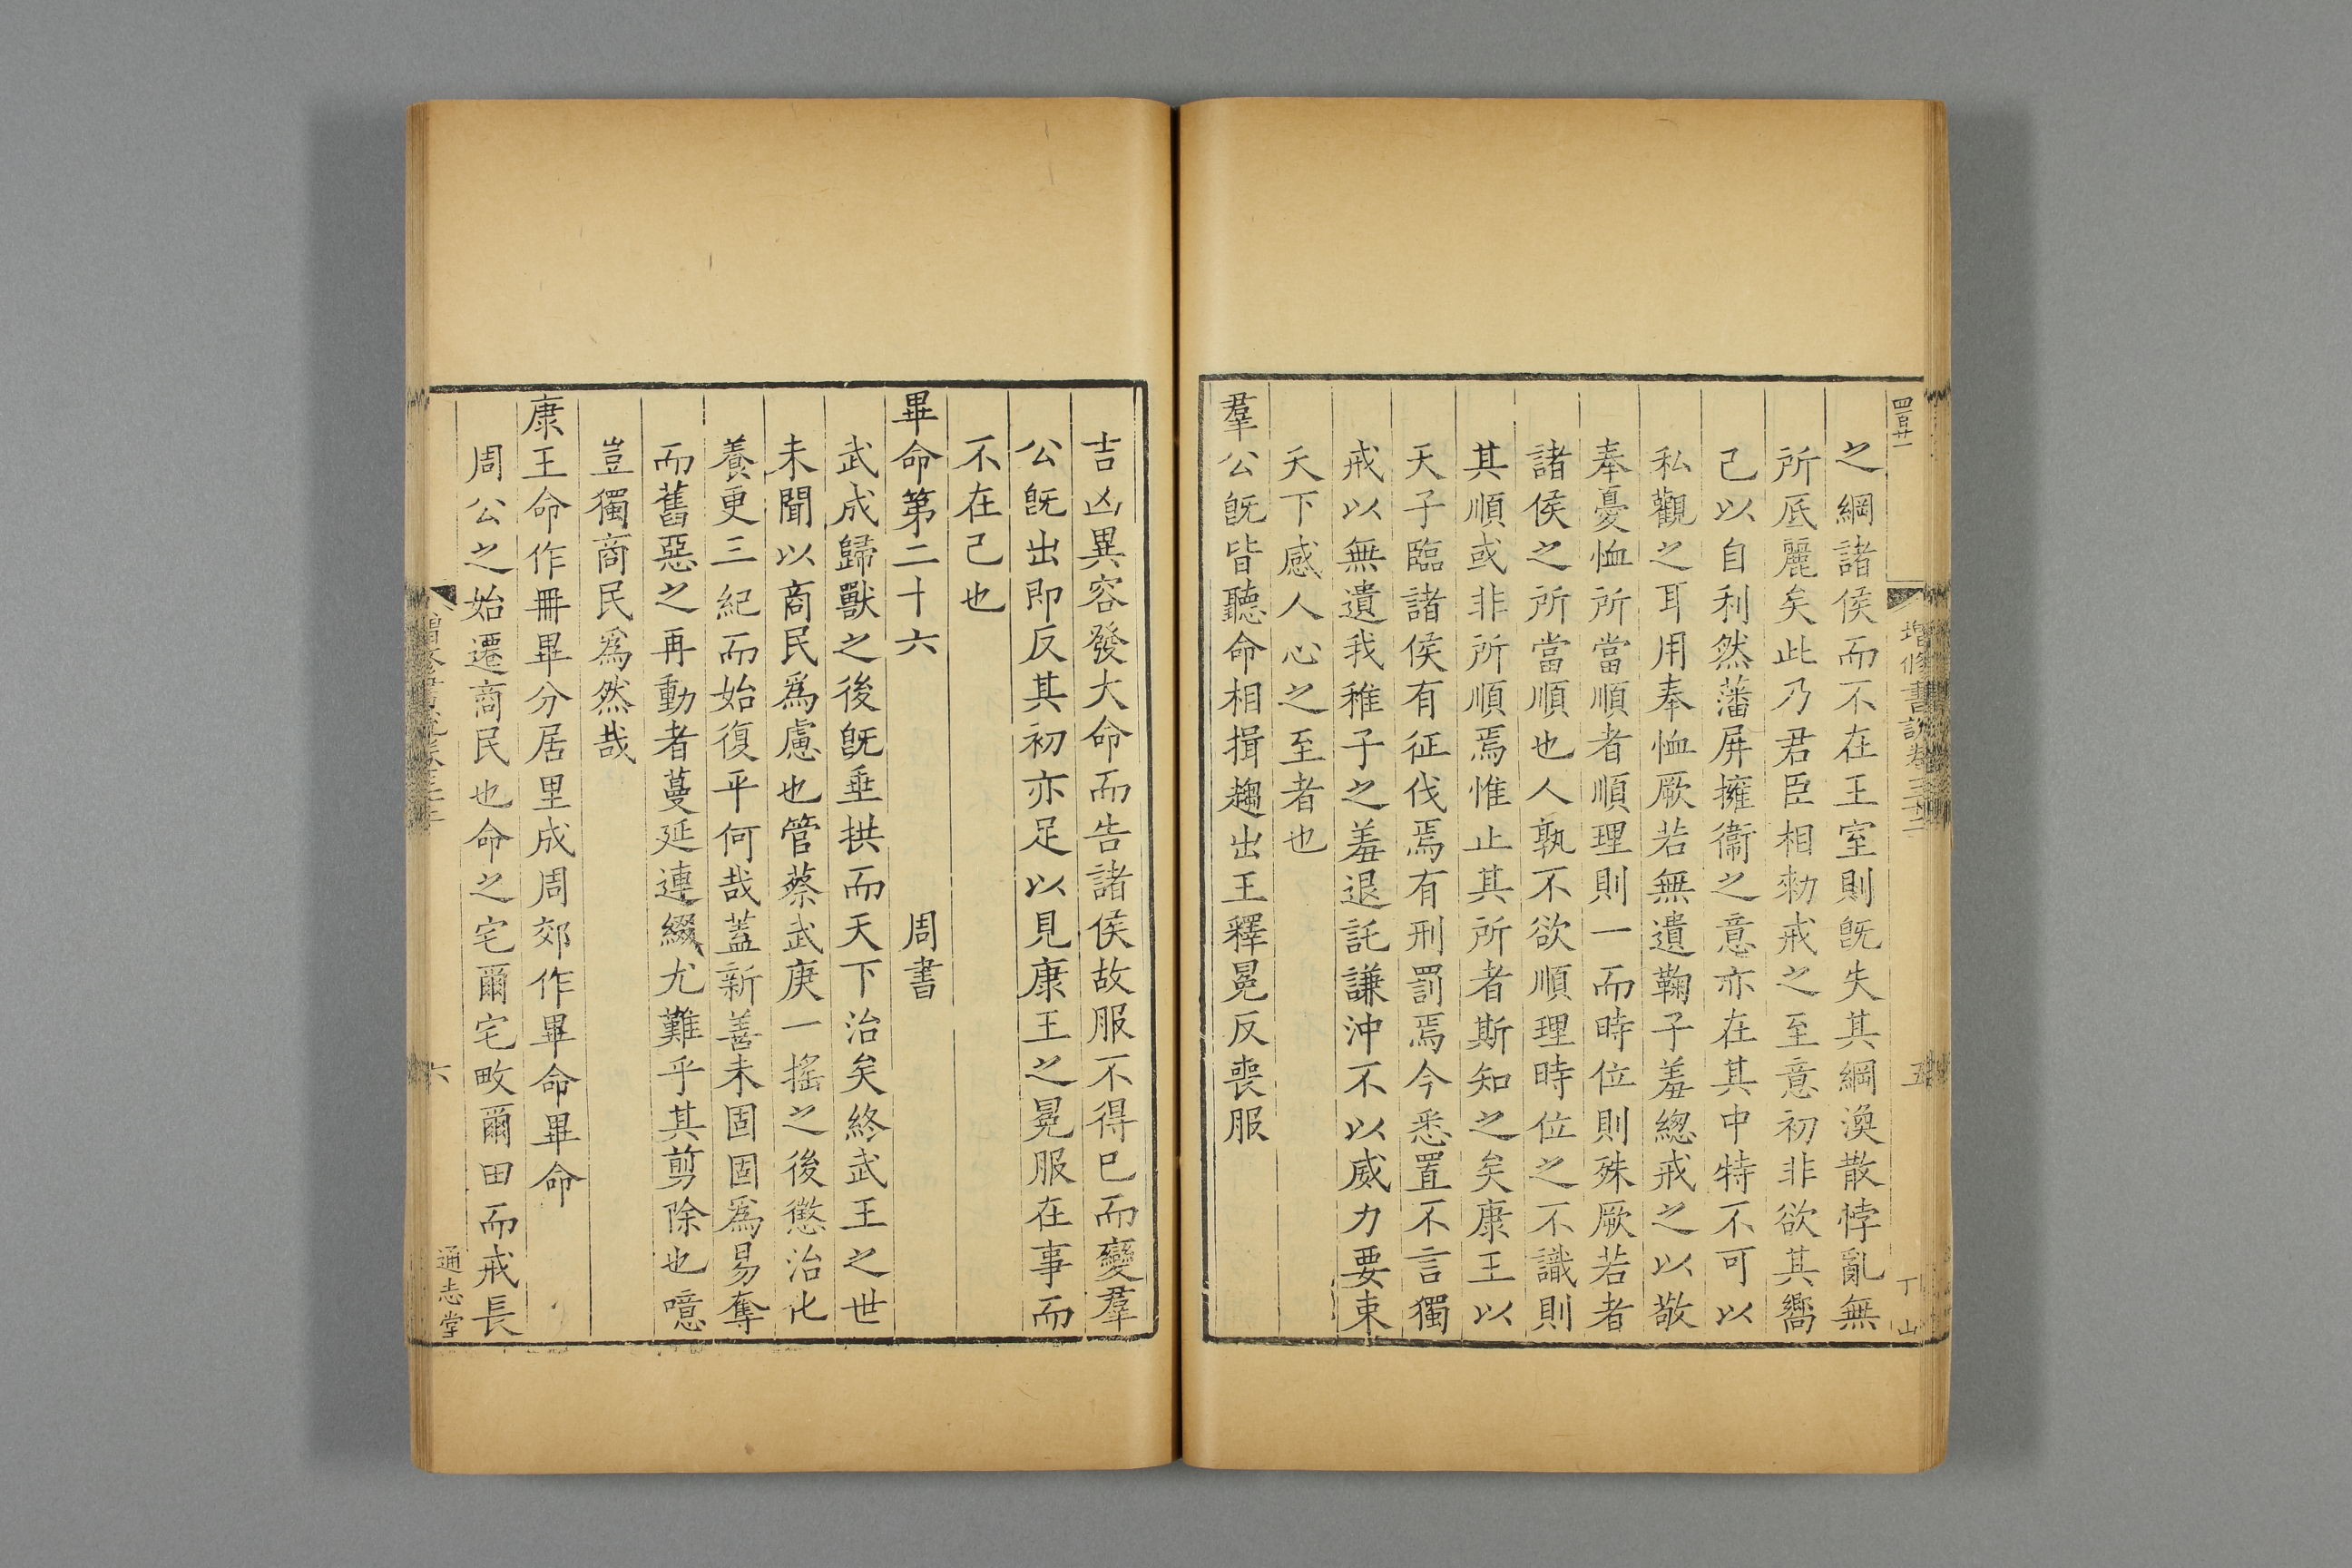 四百廿一
增修書說卷三十二
五
之綱諸侯而不在王室則旣失其綱渙散悖亂無
所底麗矣此乃君臣相勑戒之至意初非欲其嚮
己以自利然藩屏擁衞之意亦在其中特不可以
私觀之耳用奉恤厥若無遺鞠子羞緫戒之以敬
奉憂恤所當順者順理則一而時位則殊厥若者
諸侯之所當順也人孰不欲順理時位之不識則
其順或非所順焉惟止其所者斯知之矣康王以
天子臨諸侯有征伐焉有刑罰焉今悉置不言獨
戒以無遺我稚子之羞退託謙沖不以威力要束
天下感人心之至者也
羣公旣皆聽命相揖趨出王釋冕反喪服
吉凶異容發大命而告諸侯故服不得已而變羣
公旣出即反其初亦足以見康王之冕服在事而
不在己也
畢命第二十六 周書
武成歸獸之後旣垂拱而天下治矣終武王之世
未聞以商民爲慮也管蔡武庚一搖之後懲治化
養更三紀而始復平何哉蓋新善未固固爲易奪
而舊惡之再動者蔓延連綴尤難乎其剪除也噫
豈獨商民爲然哉
康王命作冊畢分居里成周郊作畢命畢命
周公之始遷商民也命之宅爾宅畋爾田而戒長
六
通志堂